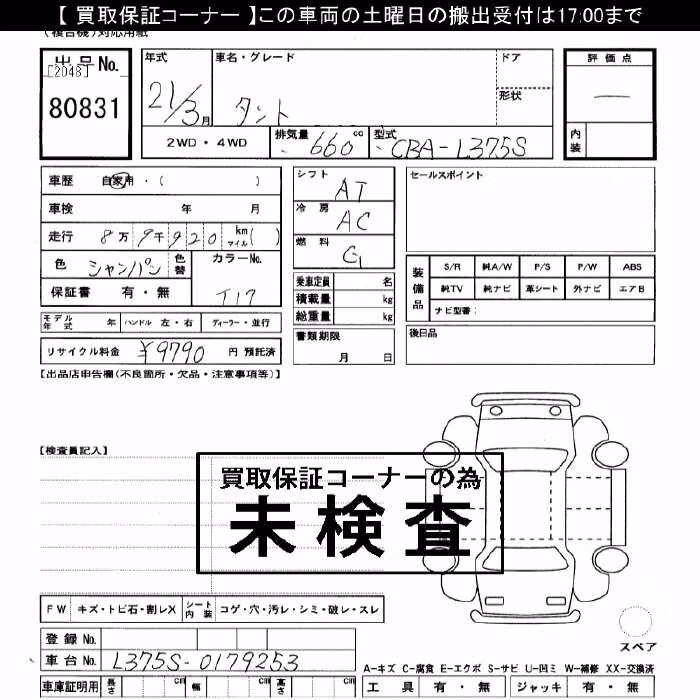 【 買取保証コーナー 】この車両の土曜日の搬出受付は17:00まで
(複合機)対応用紙
出品No.
[2048]
80831
年式
21/3月
車名・グレード
タント
ドア
形状
評価点
内装
2WD・4WD
排気量 660 cc
型式 CBA-L375S
車歴 自家用・( )
車検 年 月
走行 8万9千920 km マイル( )
色 シャンパン 色替
カラーNo. T17
保証書 有・無
モデル年式 年 ハンドル 左・右 ディーラー・並行
リサイクル料金 ¥9790 円 預託済
シフト AT
冷房 AC
燃料 G
乗車定員 名
積載量 kg
総重量 kg
書類期限
月 日
セールスポイント
装備品
S/R 純A/W P/S P/W ABS
純TV 純ナビ 革シート 外ナビ エアB
ナビ型番:
後日品
【出品店申告欄(不良箇所・欠品・注意事項等)】
【検査員記入】
買取保証コーナーの為
未検査
FW キズ・トビ石・割レX シート内装 コゲ・穴・汚レ・シミ・破レ・スレ
登録No.
車台No. L375S-0179253
車庫証明用 長さ cm 幅 cm 高さ cm
スペア
A-キズ C-腐食 E-エクボ S-サビ U-凹ミ W-補修 XX-交換済
工具 有・無 ジャッキ 有・無